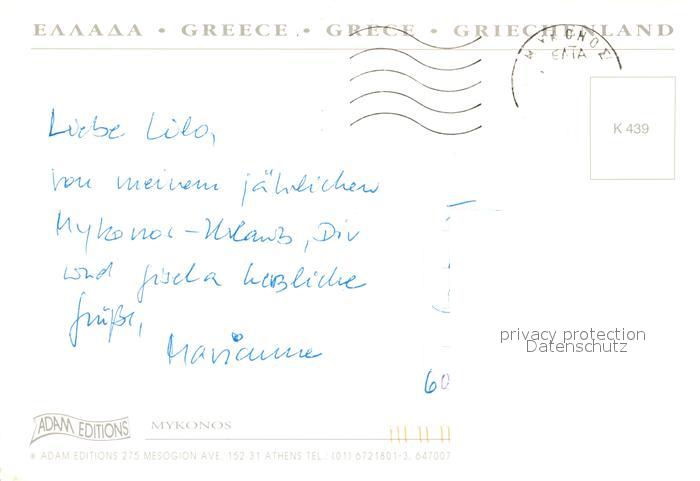 ΕΛΛΑΔΑ • GREECE • GRECE • GRIECHENLAND
ΜΥΚΟΝΟΣ
ΕΛΤΑ
K 439
Liebe Lilo,
von meinem jährlichen
Mykonos-Urlaub, Dir
und Gisela herzliche
Grüße,
Marianne
privacy protection
Datenschutz
60
ADAM EDITIONS
MYKONOS
ADAM EDITIONS 275 MESOGION AVE. 152 31 ATHENS TEL.: (01) 6721801-3, 647007